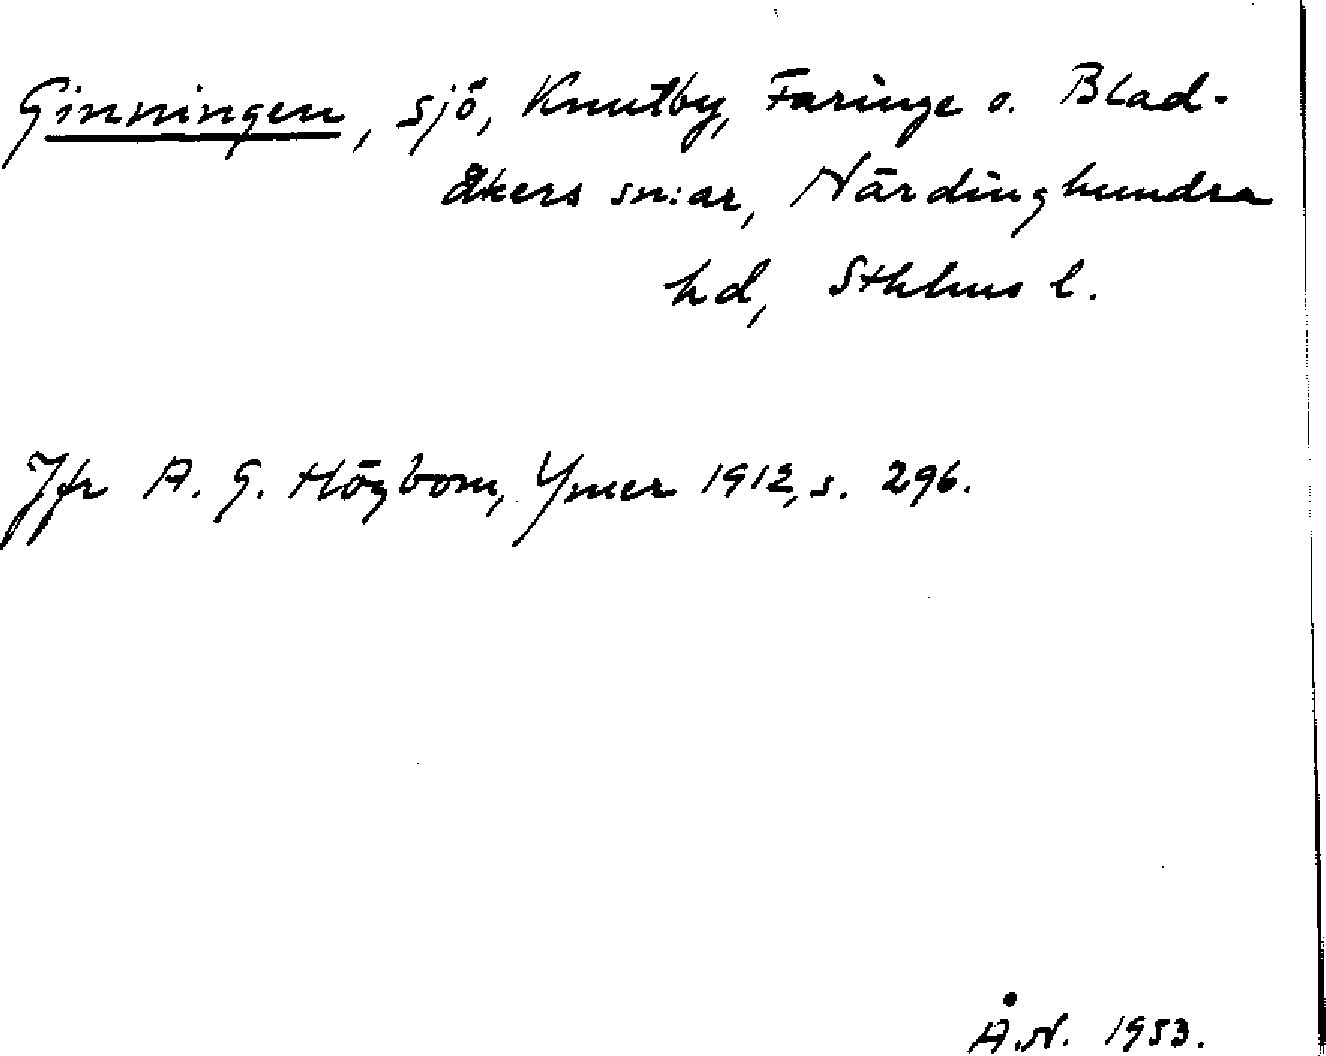 Ginningen, sjö, Knutby, Faringe o. Blad-
åkers sn:ar, Närdinghundra
hd, Sthlms l.
Jfr A. G. Högbom, Ymer 1912, s. 296.
Å.N. 1953.